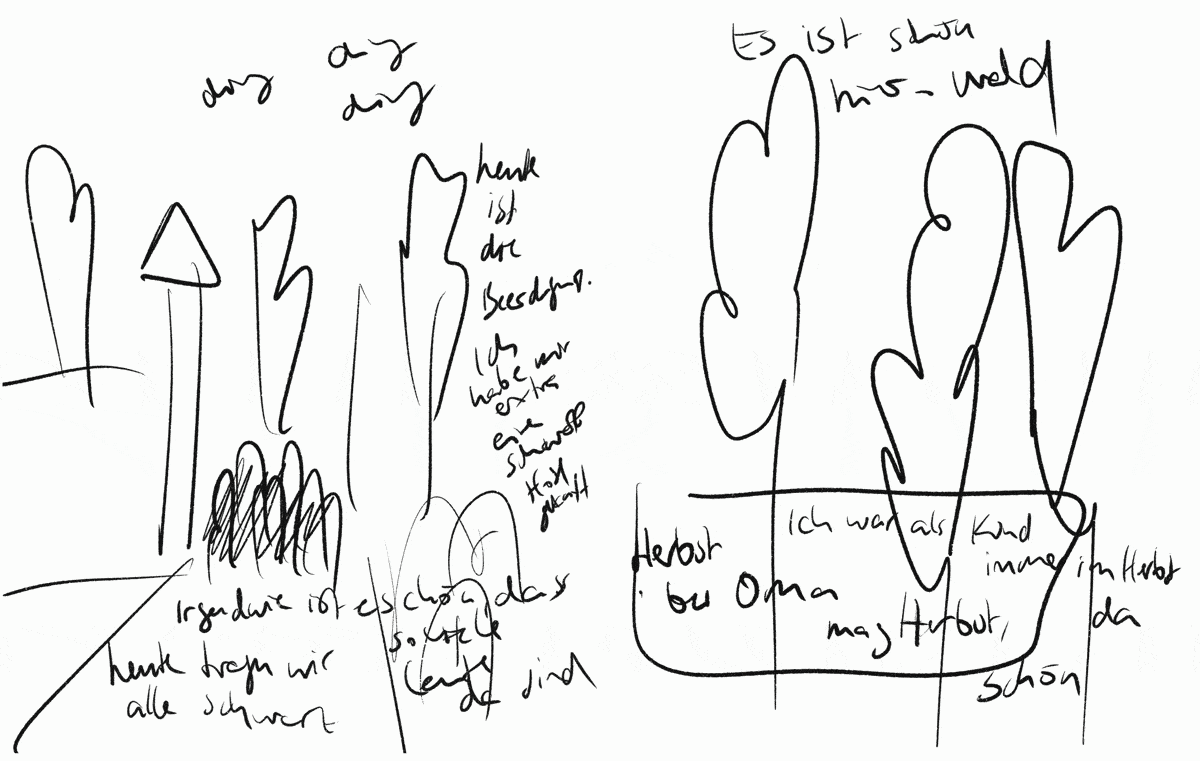 ding
ding
ding
heute
ist
die
Beerdigung.
Ich
habe mir
extra
eine
schwarze
gekauft
Irgendwie ist es schön dass
so viele
Leute
da sind
heute tragen wir
alle schwarz
Es ist schön
hier - Wald
Herbst
bei Oma
Ich war als Kind
immer im Herbst
da
mag Herbst,
schön